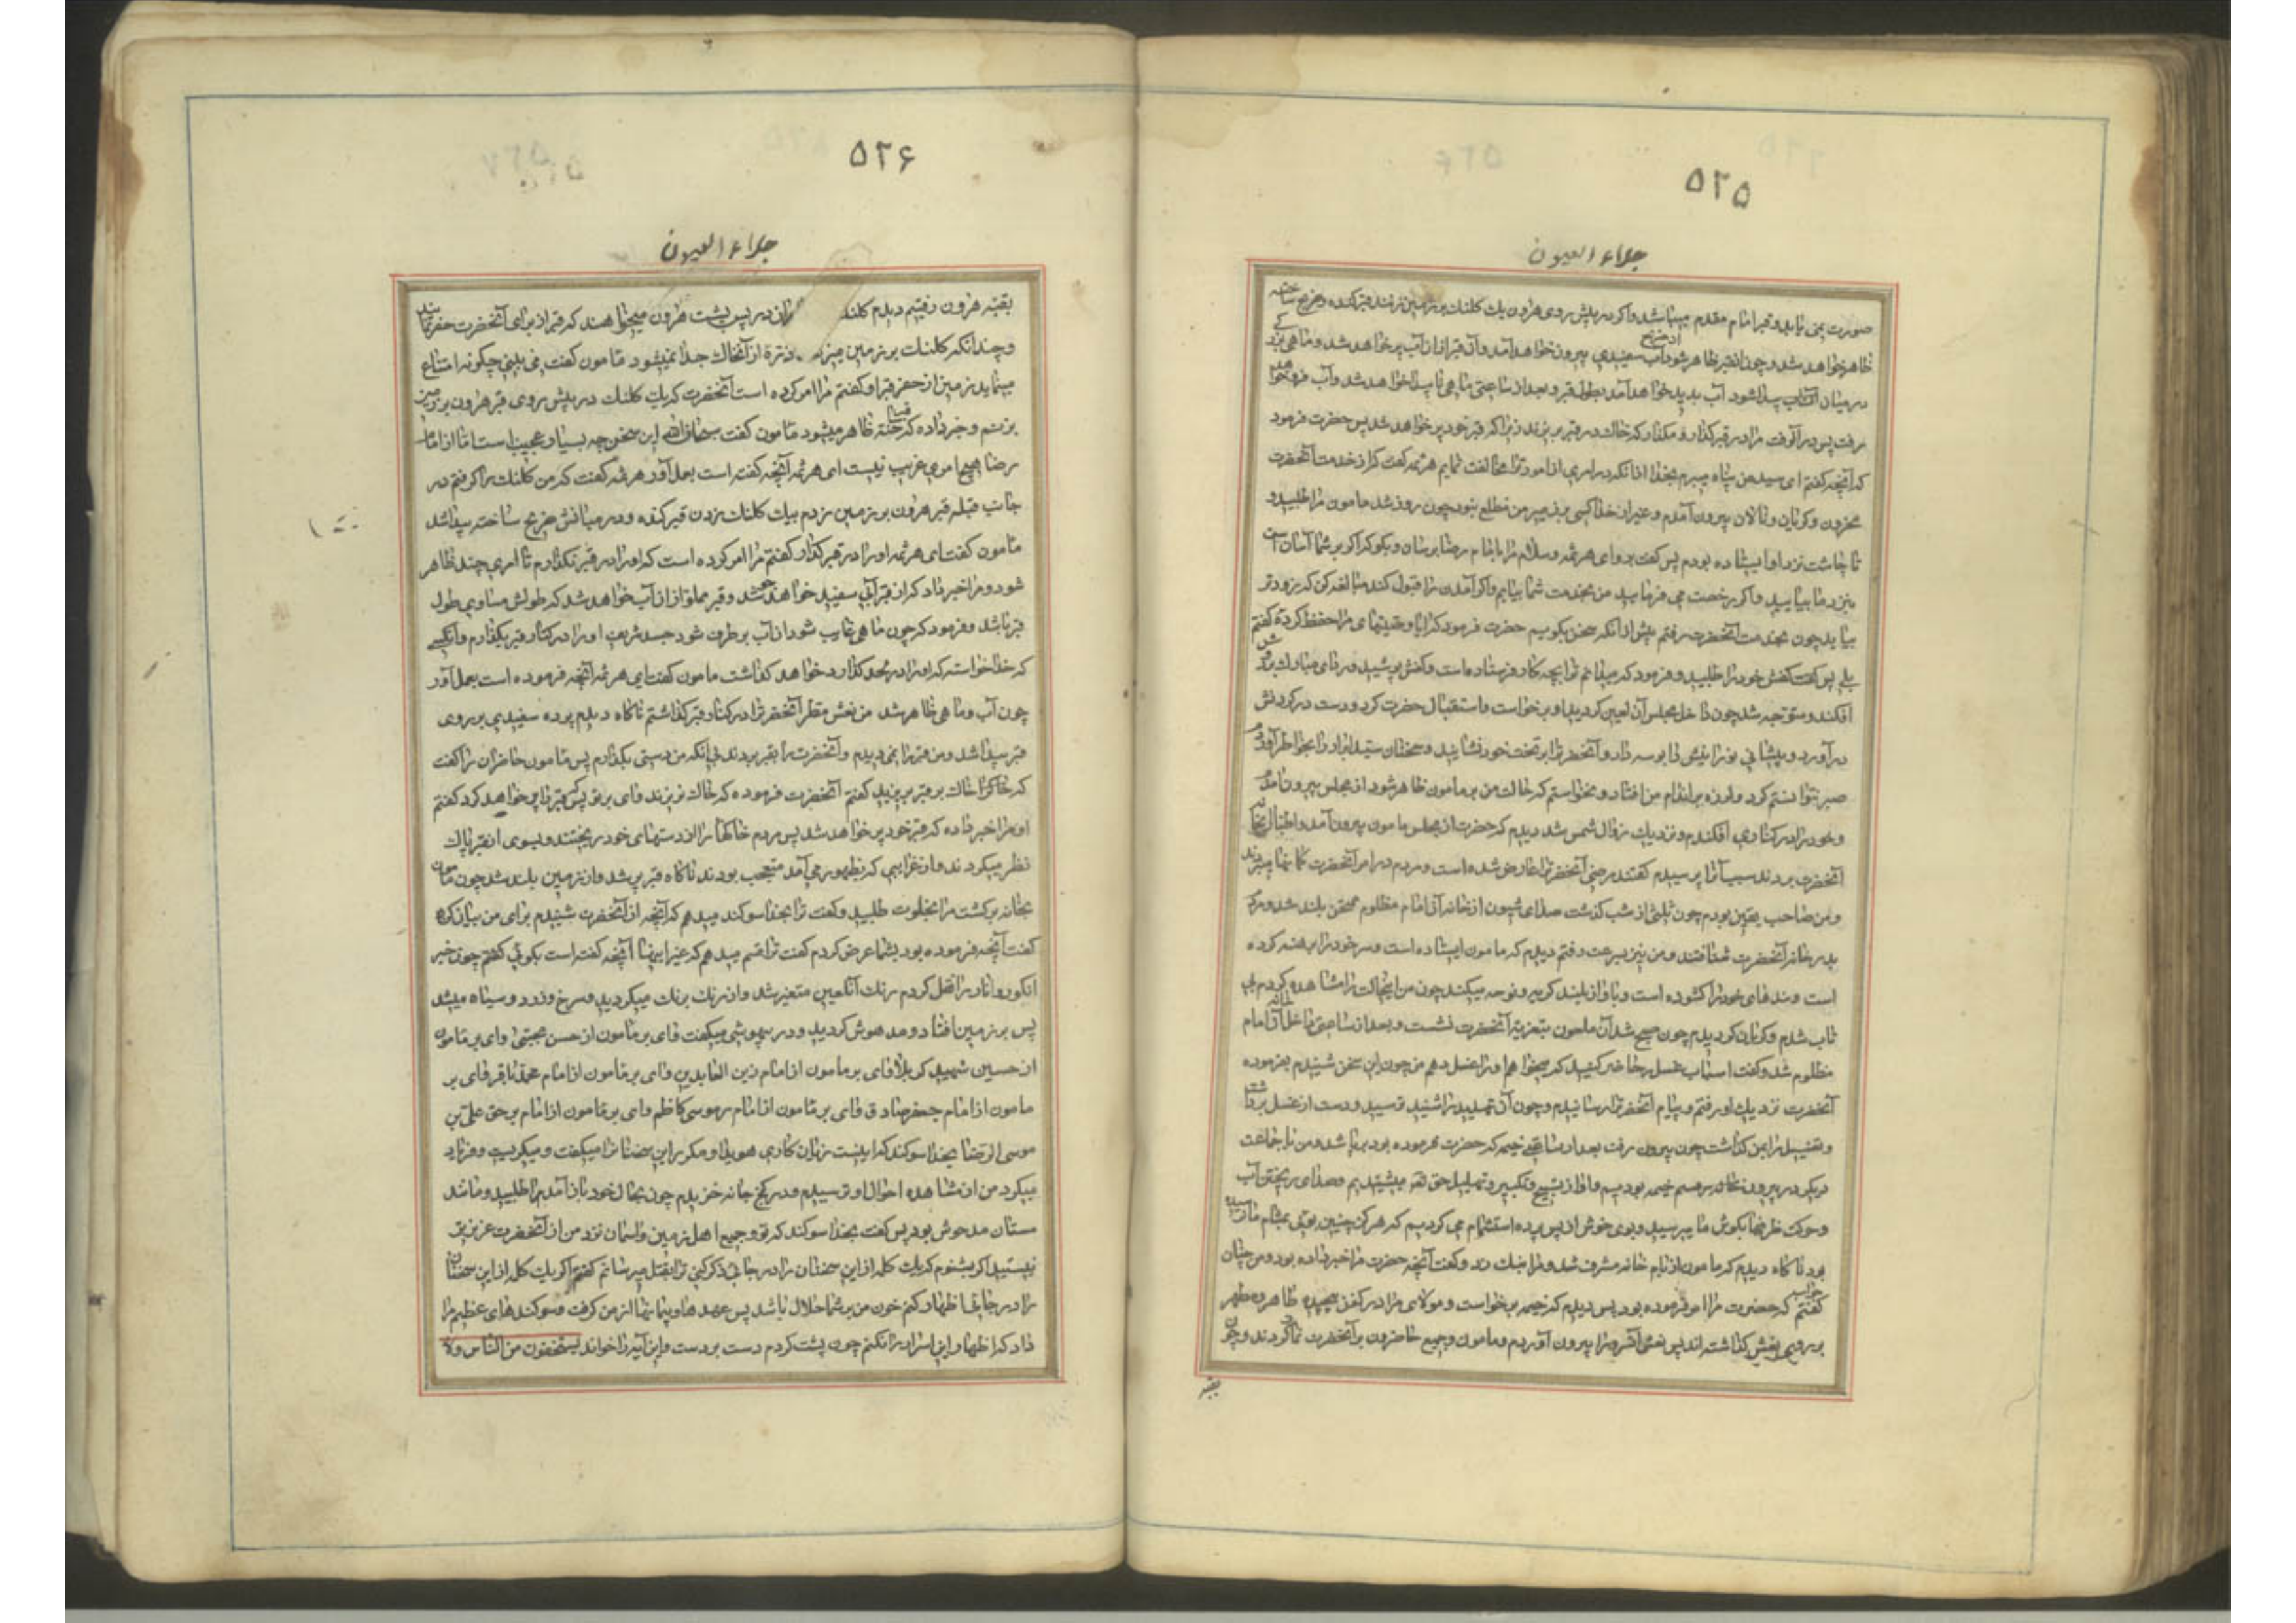 ۵۲۵
جلاء العیون
صورت نمی یابد و قبر امام مقدم میباشد و اگر در پیش روی هرون یك کلنك بر زمین زنند قبر کنده و ضریح ساخته
ظاهر خواهد شد و چون آن قبر ظاهر شود از ضریح آب سفیدی بیرون خواهد آمد و آن قبر از آن آب پر خواهد شد و ماهی بزرگی
در میان آن آب پیدا شود آب پدید خواهد آمد بطول قبر و بعد از ساعتی ماهی ناپیدا خواهد شد و آب فرو خواهد
رفت پس در آنوقت مرا در قبر گذار و مگذار که خاك در قبر بریزند زیرا که قبر خود پر خواهد شد پس حضرت فرمود
که آنچه گفتم ای سید من پناه میبرم بخدا از آنکه در امری از امور ترا مخالفت نمایم هرثمه گفت که از خدمت آنحضرت
محزون و گریان و نالان بیرون آمدم و غیر از خدا کسی بر ضمیر من مطلع نبود چون روز شد مامون مرا طلبید و
تا چاشت نزد او ایستاده بودم پس گفت برو ای هرثمه و سلام مرا بامام رضا برسان و بگو که اگر بر شما آسان است
بنزد ما بیایید و اگر رخصت می فرمایید من بخدمت شما بیایم و اگر آمدن را قبول کند مبالغه کن که زودتر
بیاید چون بخدمت آنحضرت رفتم پیش از آنکه سخن بگویم حضرت فرمود که آیا وصیتهای مرا حفظ کردۀ گفتم
بلی پس کفش خود را طلبید و فرمود که میدانم ترا بچه کار فرستاده است و کفش پوشید و ردای مبارك بر دوش
افکند و متوجه شد چون داخل مجلس آن لعین گردید او برخواست و استقبال حضرت کرد و دست در گردنش
در آورد و پیشانی نورانیش را بوسه داد و آنحضرت را بر تخت خود نشانید و سخنان
صبر نتوانستم کرد و لرزه بر اندام من افتاد و نخواستم که حالت من بر مامون ظاهر شود از مجلس بیرون آمدم
و خود را در کناری افکندم و نزدیك زوال شمس شد دیدم که حضرت از مجلس مامون بیرون آمد و
آنحضرت بردند سبب آنرا پرسیدم گفتند مرضی آنحضرت را عارض شده است و مردم در امر آنحضرت گمانها میبردند
و من صاحب یقین بودم چون ثلثی از شب گذشت صدای شیون از خانه آن امام مظلوم بلند شد و مردم
بدر خانه آنحضرت شتافتند و من نیز بسرعت رفتم دیدم که مامون ایستاده است و سر خود را برهنه کرده
است و بندهای خود را گشوده است و بآواز بلند گریه و نوحه میکند چون من این حالت را مشاهده کردم بی
تاب شدم و گریان گردیدم چون صبح شد آن ملعون بتعزیۀ آنحضرت نشست و بعد از ساعتی داخل خانه آن امام
مظلوم شد و گفت اسباب غسل را حاضر کنید که میخواهم او را غسل دهم من چون این سخن شنیدم بفرموده
آنحضرت نزدیك او رفتم و پیام آنحضرت را رسانیدم و چون آن تهدید را شنید ترسید و دست از غسل برداشت
و تغسیل را بمن گذاشت چون بیرون رفت بعد از ساعتی خیمه که حضرت فرموده بود برپا شد و من با جماعت
دیگر در بیرون خیمه بودیم و آواز تسبیح و تکبیر و تهلیل حق تعالی میشنیدیم و صدای ریختن آب
و حرکت ظرفها بگوش ما میرسید و بوی خوش از پس پرده استشمام می کردیم که هرگز چنین بوئی بمشام ما نرسیده
بود ناگاه دیدم که مامون از بام خانه مشرف شد و مرا ندا کرد و گفت آنچه حضرت مرا خبر داده بود و من جواب چنان
گفتم که حضرت مرا امر فرموده بود پس دیدم که خیمه برخواست و مولای مرا در کفن پیچیده طاهر و مطهر
بر روی نعش گذاشته اند پس نعش آنسرور را بیرون آوردم و مامون و جمیع حاضرون بر آنحضرت نماز کردند و چون
بقبه
۵۲۶
جلاء العیون
بقبه هرون رفتیم دیدم کلند داران در پس پشت هرون میخواهند که قبر از برای آنحضرت حفر نمایند
و چندانکه کلنك بر زمین میزنند ذرۀ از آنخاك جدا نمیشود مامون گفت می بینی چگونه امتناع
مینماید زمین از حفر قبر او گفتم مرا امر کرده است آنحضرت که یك کلنك در پیش روی قبر هرون بر زمین
بزنم و خبر داده که قبر ساخته ظاهر میشود مامون گفت سبحان الله این سخن چه بسیار عجیب است اما از امام
رضا هیچ امری غریب نیست ای هرثمه آنچه گفته است بعمل آور هرثمه گفت که من کلنك را گرفتم در
جانب قبله قبر هرون بر زمین زدم بیك کلنك زدن قبر کنده و در میانش ضریح ساخته پیدا شد
مامون گفت ای هرثمه او را در قبر گذار گفتم مرا امر کرده است که او را در قبر نگذارم تا امری چند ظاهر
شود و مرا خبر داد که از قبر آبی سفید خواهد جوشید و قبر مملو از آن آب خواهد شد که طولش مساوی طول
قبر باشد و فرمود که چون ماهی غایب شود و آب بر طرف شود جسد شریف او را در کنار قبر بگذارم و آنکسی
که خدا خواسته که او را در لحد گذارد خواهد گذاشت مامون گفت ای هرثمه آنچه فرموده است بعمل آور
چون آب و ماهی ظاهر شد من نعش مطهر آنحضرت را در کنار قبر گذاشتم ناگاه دیدم پرده سفیدی بر روی
قبر پیدا شد و من قبر را نمی دیدم و آنحضرت را بقبر بردند بی آنکه من دستی بگذارم پس مامون حاضران را گفت
که خاك بر قبر بریزید گفتم آنحضرت فرموده که خاك نریزند وای بر تو پس کی قبر را پر خواهد کرد گفتم
او مرا خبر داده که قبر خود پر خواهد شد پس مردم خاکها را از دستهای خود ریختند و بسوی آن قبر پاك
نظر میکردند و از غرایبی که بظهور می آمد متعجب بودند ناگاه قبر پر شد و از زمین بلند شد چون مامون
بخانه برگشت مرا بخلوت طلبید و گفت ترا بخدا سوگند میدهم که آنچه از آنحضرت شنیدم برای من بیان کن
گفت آنچه فرموده بود بشما عرض کردم گفت ترا قسم میدهم که غیر اینها آنچه گفته است بگوئی گفتم چون خبر
انگور و انار را نقل کردم رنك آنلعین متغیر شد و از رنك برنك میگردید و سرخ و زرد و سیاه میشد
پس بر زمین افتاد و مدهوش گردید و در بیهوشی میگفت وای بر مامون از حسن مجتبی وای بر مامون
از حسین شهید کربلا وای بر مامون از امام زین العابدین وای بر مامون از امام محمد باقر وای بر
مامون از امام جعفر صادق وای بر مامون از امام موسی کاظم وای بر مامون از امام بر حق علی بن
موسی الرضا بخدا سوگند که اینست زیان کاری هویدا و مکرر این سخنان را میگفت و میگریست و فریاد
میکرد من از مشاهده احوال او ترسیدم و در کنج خانه خزیدم چون بحال خود باز آمد مرا طلبید و مانند
مستان مدهوش بود پس گفت بخدا سوگند که تو و جمیع اهل زمین و آسمان نزد من از آنحضرت عزیزتر
نیستید اگر بشنوم که یك کلمه از این سخنان را در جائی ذکر کنی ترا بقتل میرسانم گفتم اگر یك کلمه از این سخنان
را در جائی اظهار کنم خون من بر شما حلال باشد پس عهدها و پیمانها از من گرفت و سوگندهای عظیم مرا
داد که اظهار این اسرار را نکنم چون پشت کردم دست بر دست و این آیه را خواند یستخفون من الناس ولا